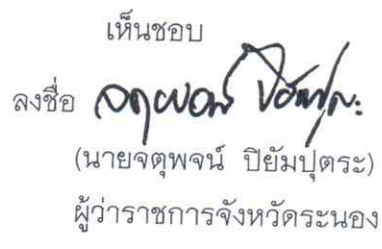 เห็นชอบ
ลงชื่อ จตุพจน์ ปิยัมปุตระ
(นายจตุพจน์ ปิยัมปุตระ)
ผู้ว่าราชการจังหวัดระนอง